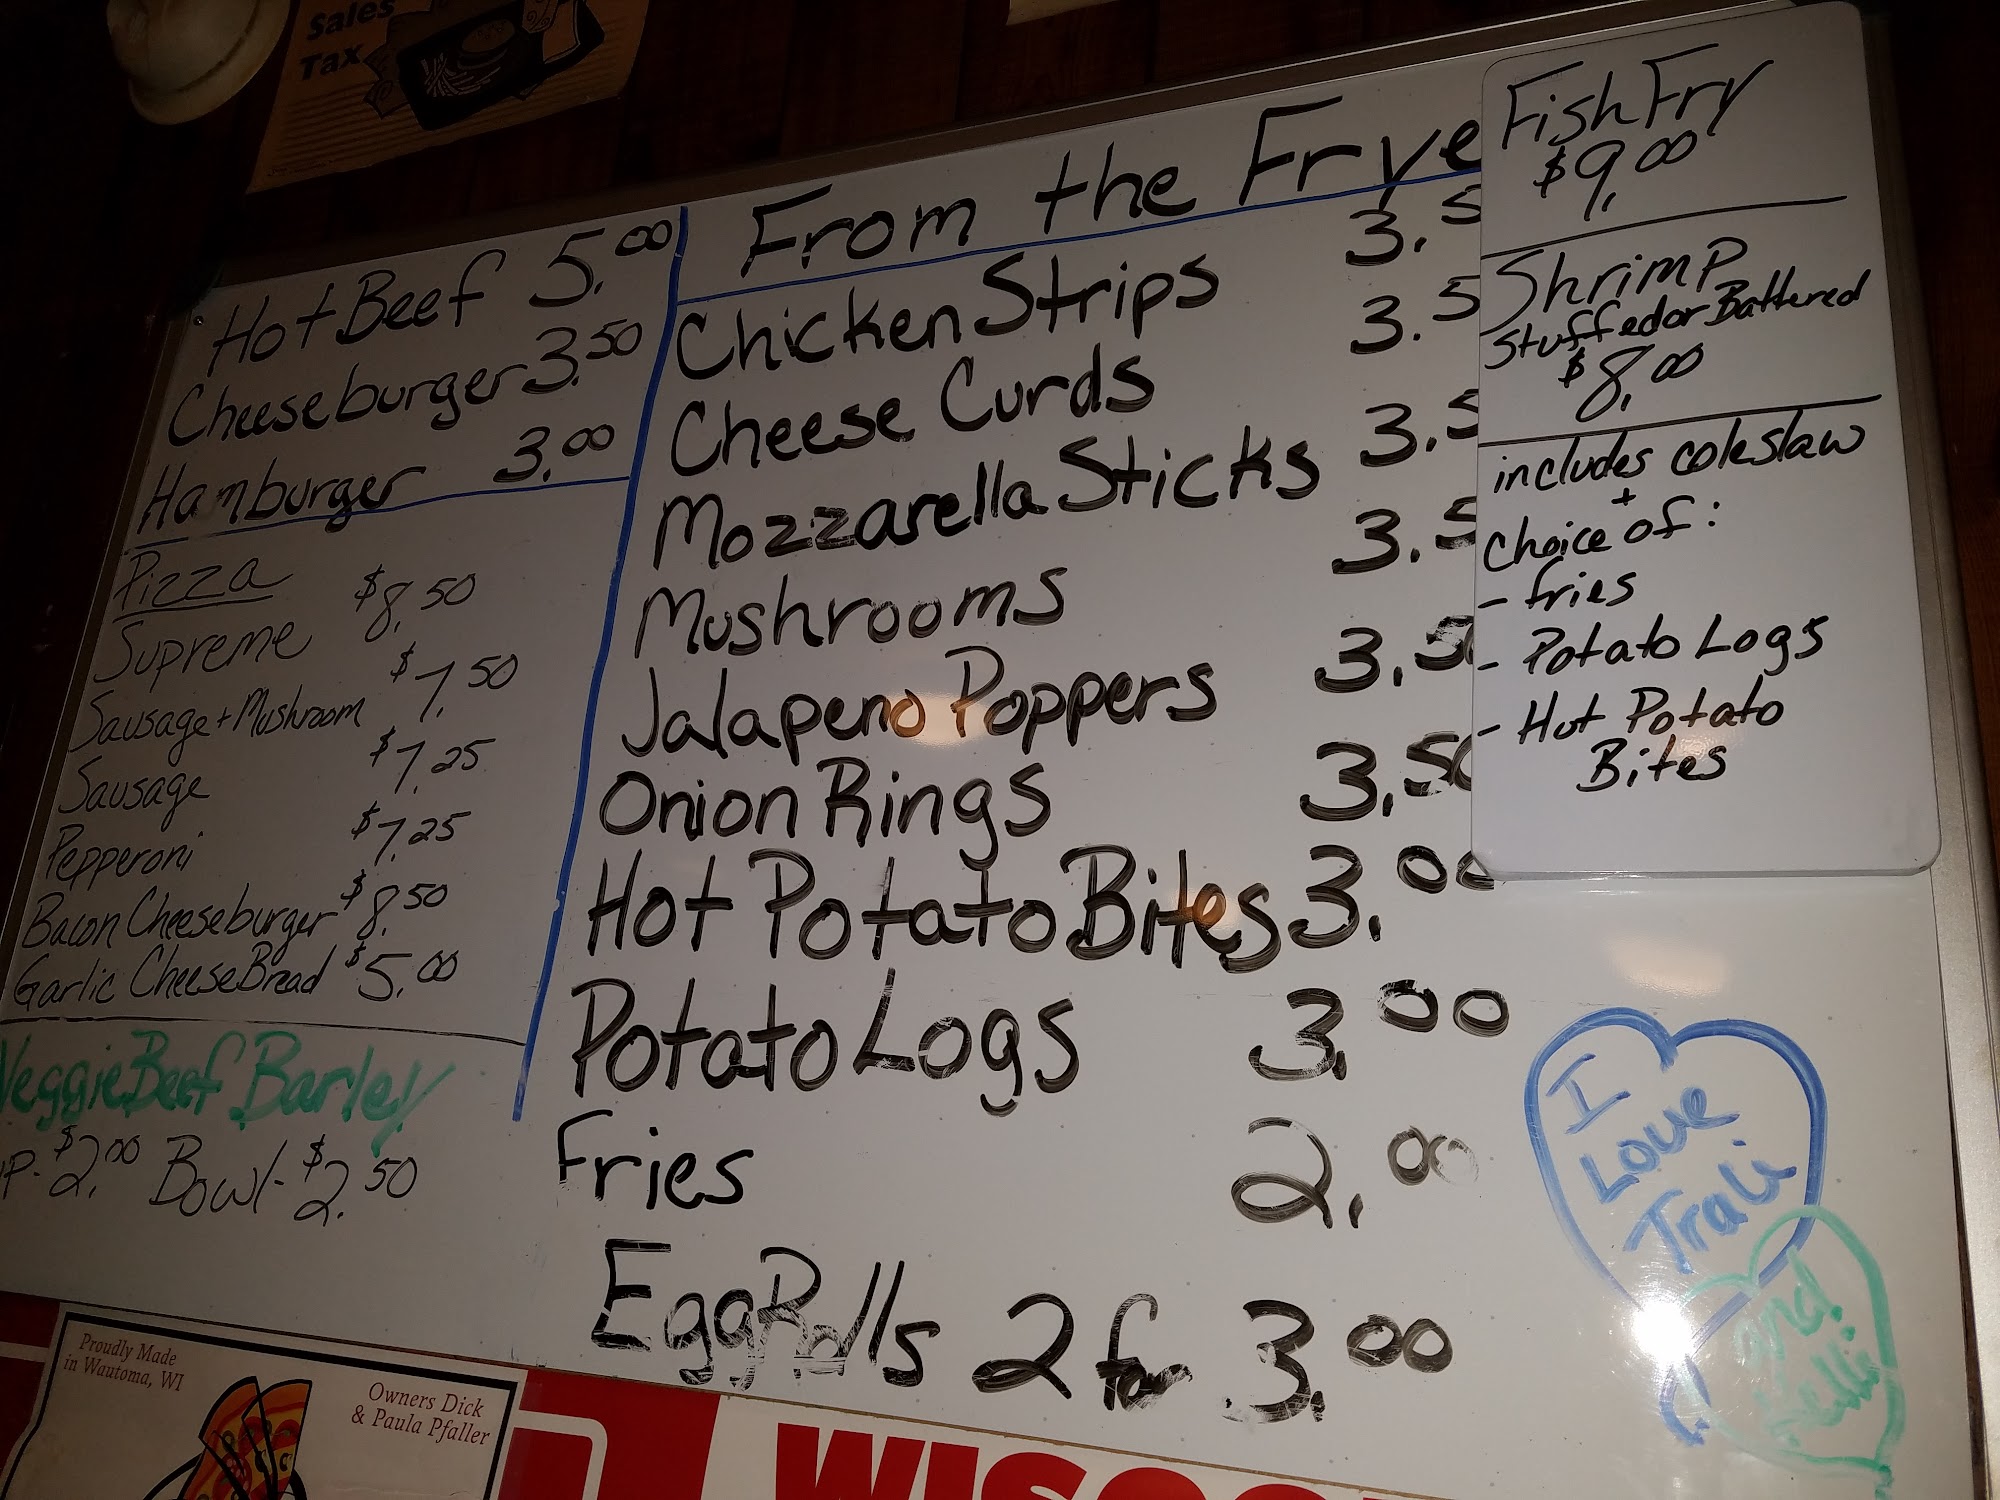 Sales
Tax
Hot Beef 5.00
Cheeseburger 3.50
Hamburger 3.00
Pizza
Supreme $8.50
Sausage + Mushroom $7.50
Sausage $7.25
Pepperoni $7.25
Bacon Cheeseburger $8.50
Garlic Cheese Bread $5.00
Veggie Beef Barley
P. $2.00 Bowl - $2.50
From the Frye
Chicken Strips 3.5
Cheese Curds 3.5
Mozzarella Sticks 3.5
Mushrooms 3.5
Jalapeno Poppers 3.50
Onion Rings 3.50
Hot Potato Bites 3.00
Potato Logs 3.00
Fries 2.00
Egg Rolls 2 for 3.00
Fish Fry
$9.00
Shrimp
Stuffed or Battered
$8.00
includes coleslaw
+
Choice of:
- fries
- Potato Logs
- Hot Potato
Bites
I
Love
and
Proudly Made
in Wautoma, WI
Owners Dick
& Paula Pfaller
WISCO